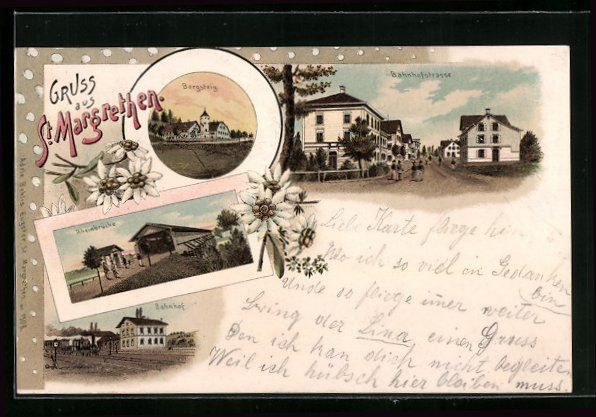 GRUSS
aus
St. Margrethen.
Bergsteig
Bahnhofstrasse
Rheinbrücke
Bahnhof
Liebe Karte fliege hin
Wo ich so viel in Gedanken
bin
Unde so fliege imer weiter
bring der Lina einen Gruss
Den ich kan dich nicht begleiten
Weil ich hübsch hier bleiben muss.